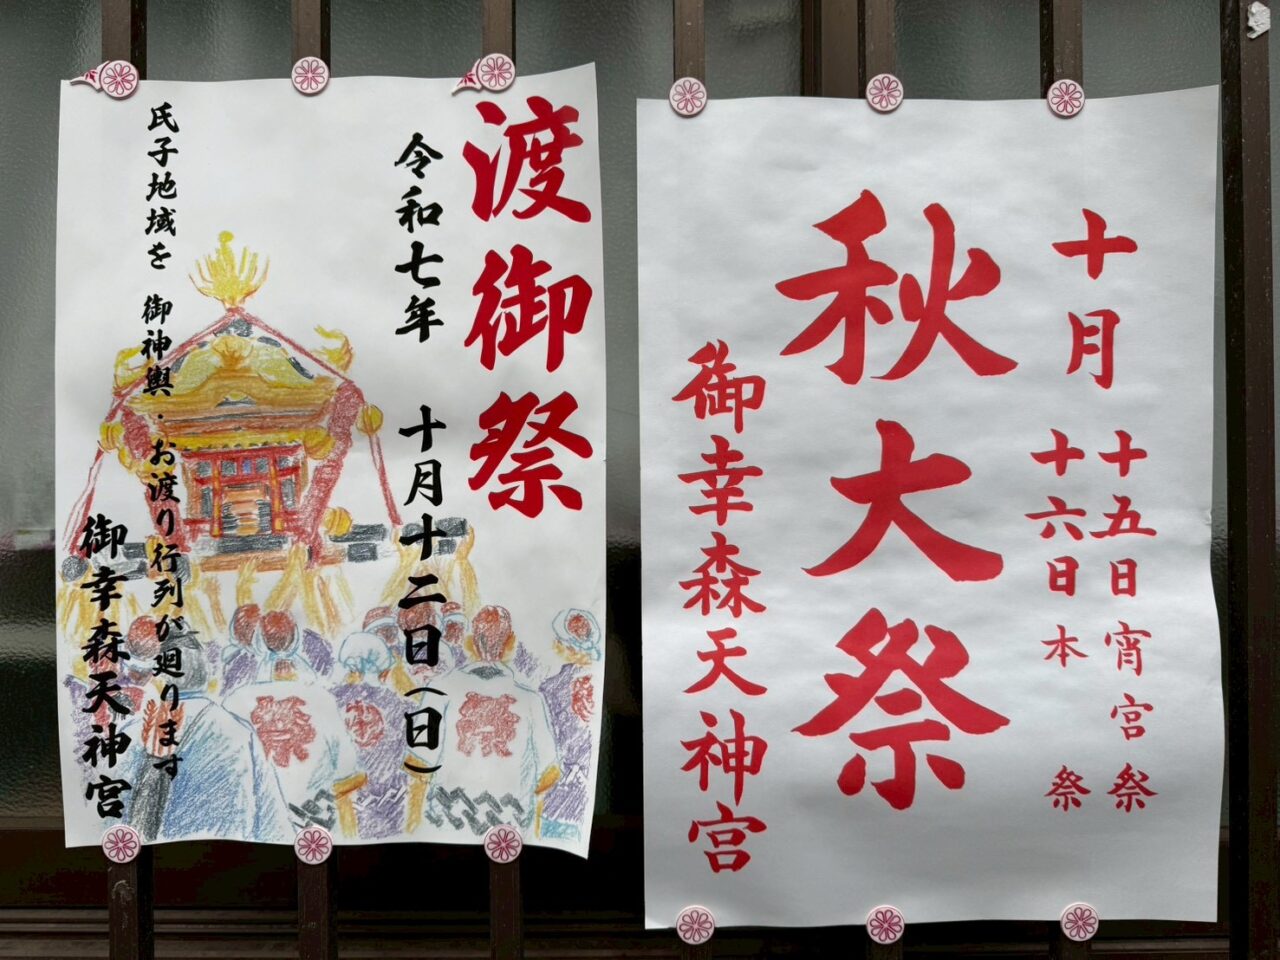 渡御祭
令和七年 十月十二日(日)
氏子地域を 御神輿・お渡り行列が廻ります
御幸森天神宮
十月
十五日 宵宮祭
十六日 本祭
秋大祭
御幸森天神宮